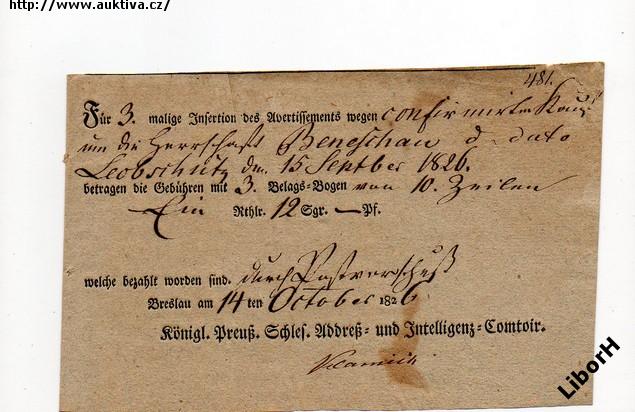 http://www.auktiva.cz/
481.
Für 3. malige Insertion des Avertissements wegen confirmirten
um die Herrschaft Beneschau d. dato
Leobschütz den 15 Septber 1826.
betragen die Gebühren mit 3. Belags-Bogen von 10. Zeilen
Ein Rthlr. 12 Sgr. — Pf.
welche bezahlt worden sind. durch Postvorschuß
Breslau am 14 ten October 1826
Königl. Preuß. Schles. Addreß- und Intelligenz-Comtoir.
LiborH